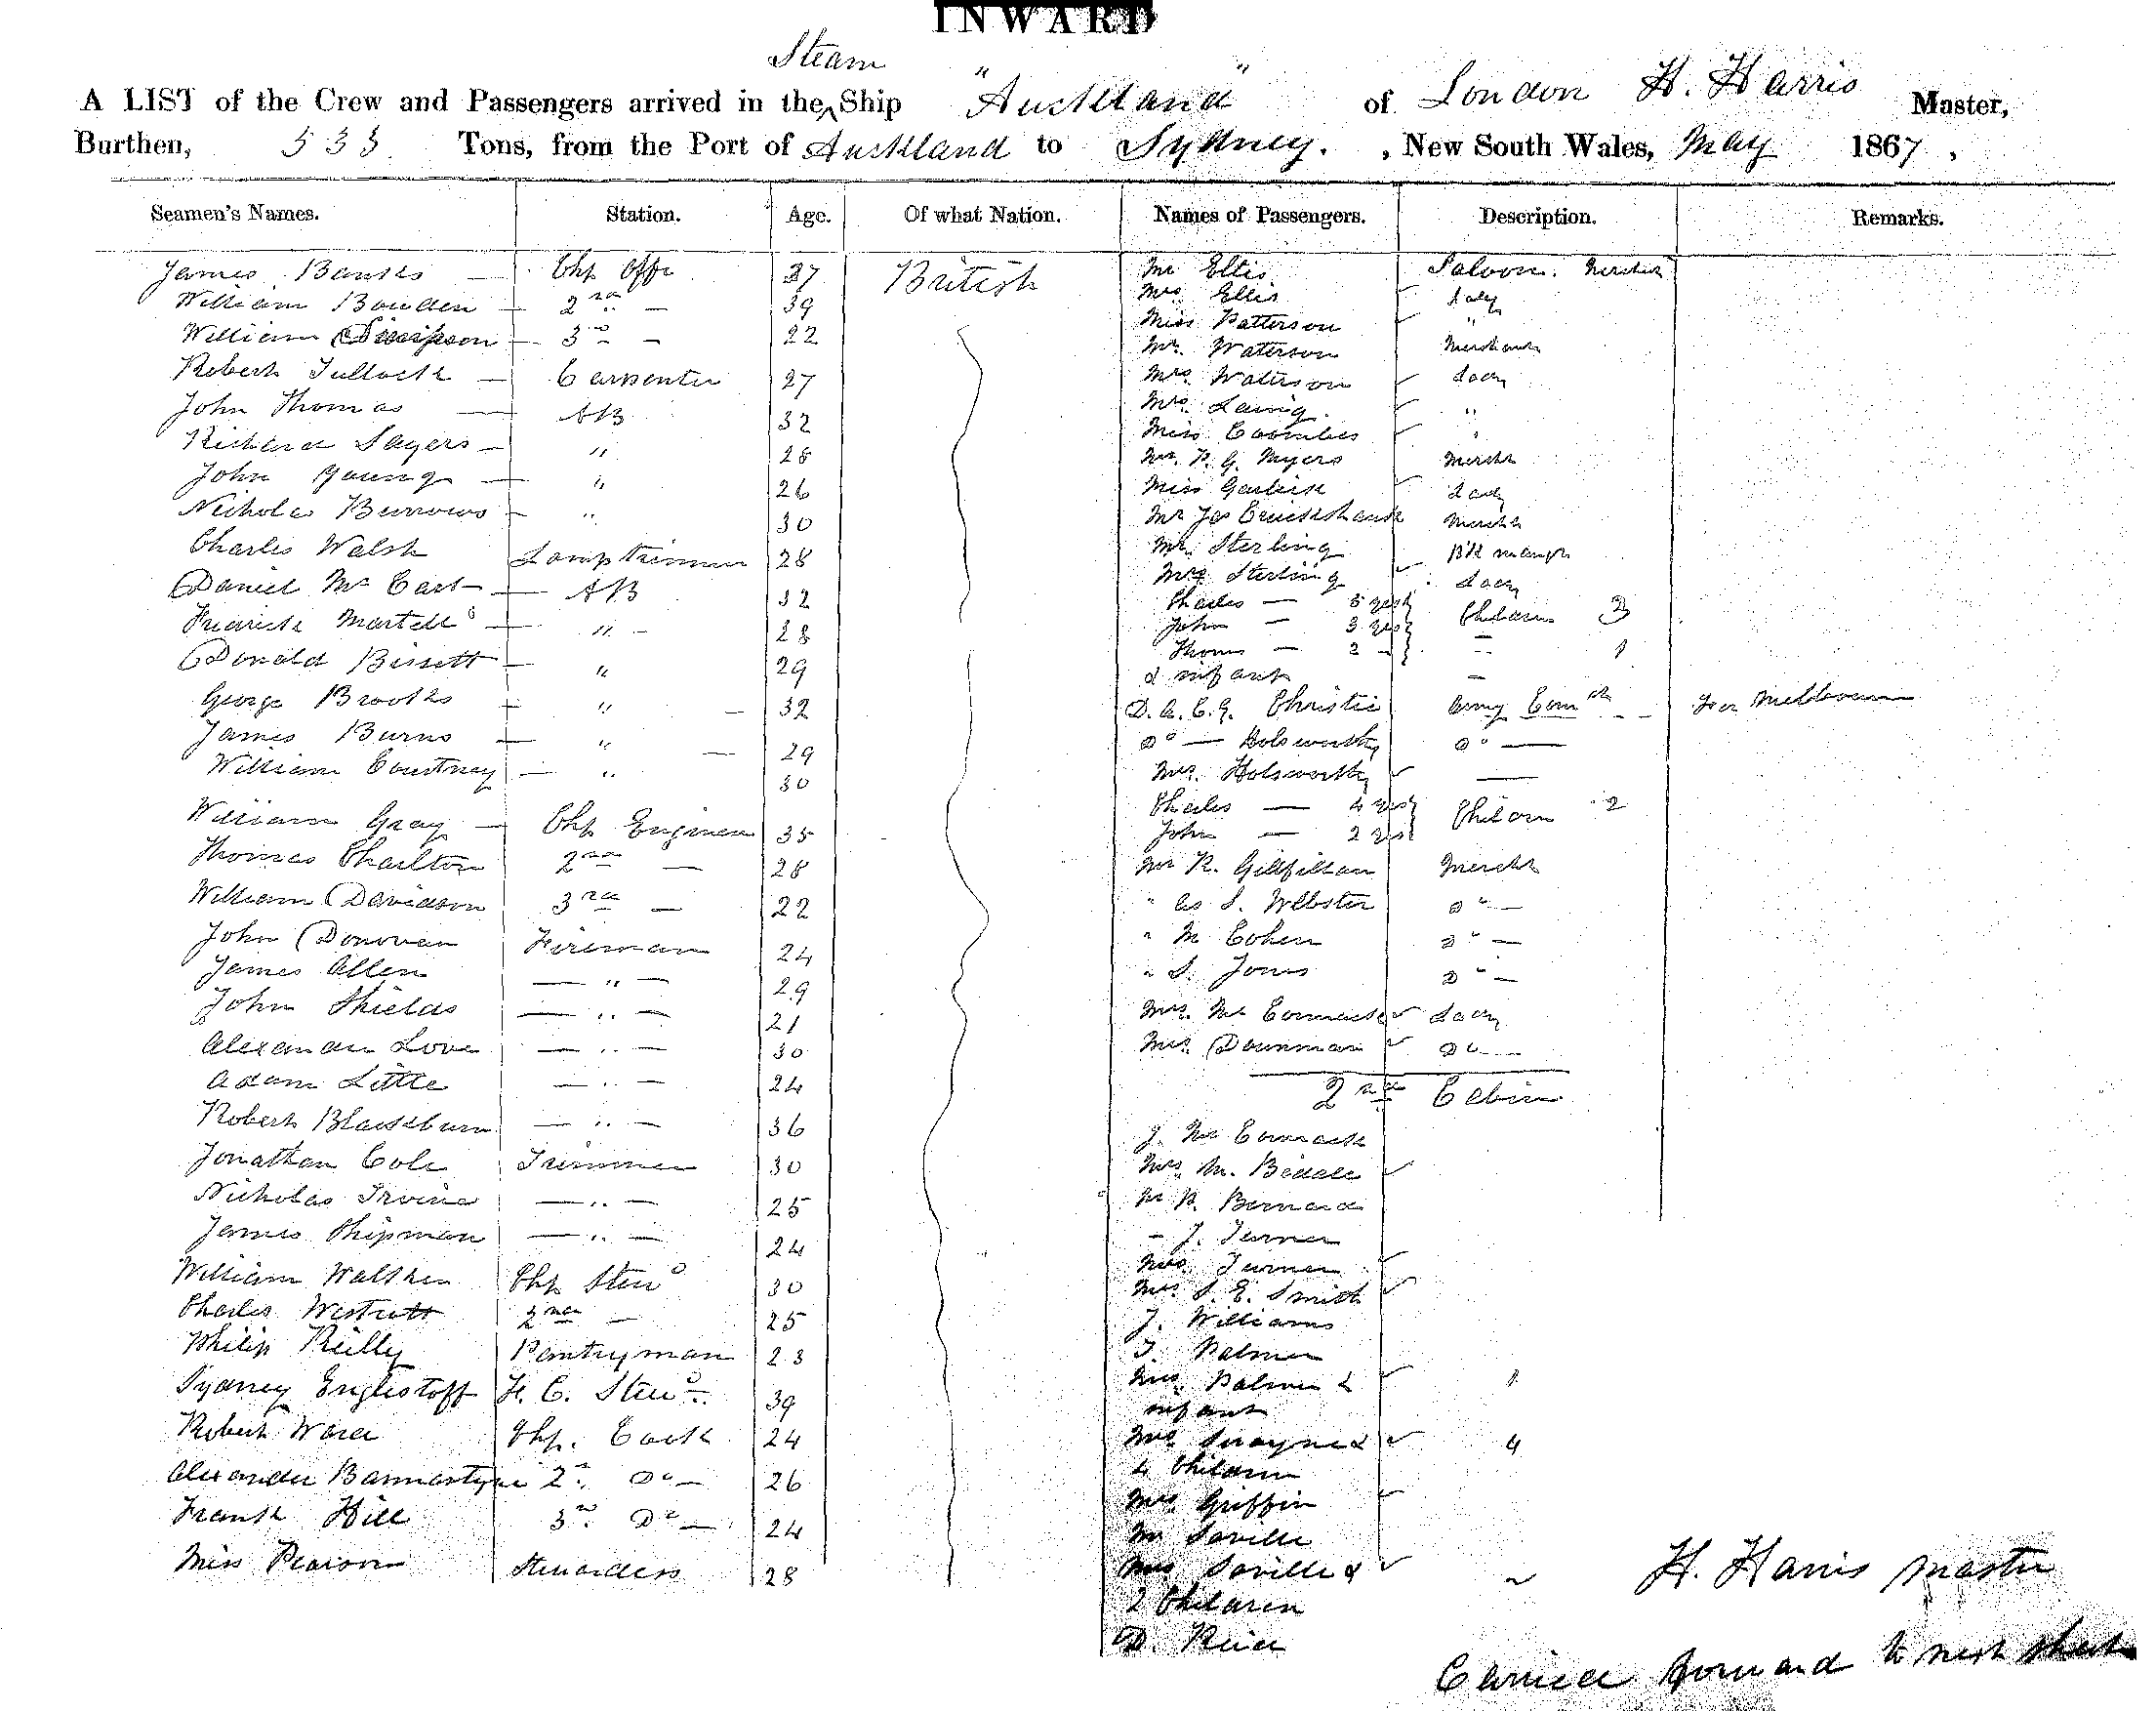 INWARD
Steam
A LIST of the Crew and Passengers arrived in the Ship "Auckland" of London H. Harris Master,
Burthen, 533 Tons, from the Port of Auckland to Sydney. , New South Wales, May 1867,
Seamen's Names. Station. Age. Of what Nation. Names of Passengers. Description. Remarks.
James Banks — Chf Offr 37 British
William Bowden — 2nd — 39
William Simpson — 3rd — 22
Robert Tullock — Carpenter 27
John Thomas — AB 32
Richard Sayers — " 28
John Young — " 26
Nicholas Burrows — " 30
Charles Walsh Lamptrimmer 28
Daniel Mc Cart — AB 32
Fredrick Martell — " — 28
Donald Bissett — " 29
George Brooks — " — 32
James Burns — " — 29
William Courtnay — " 30
William Gray — Chf Engineer 35
Thomas Charlton 2nd — 28
William Davidson 3rd — 22
John Donovan Fireman 24
James Allen — " — 29
John Shields — " — 21
Alexander Love — " — 30
Adam Little — " — 24
Robert Blackburn — " — 36
Jonathan Cole Trimmer 30
Nicholas Irvine — " — 25
James Shipman — " — 24
William Walther Chf Stewd 30
Charles Westrutt 2nd — 25
Philip Reilly Pantryman 23
Sydney Englestoff F. C. Stewd 39
Robert Ward Chf. Cook 24
Alexander Bannastyne 2nd Do — 26
Frank Hill 3rd Do — 24
Miss Pearson Stewardess 28
Mr Ellis Saloon. Mercht
Mrs Ellis Lady
Miss Patterson "
Mr. Waterson Merchant
Mrs. Waterson Lady
Mrs. Laing "
Miss Coombes "
Mr. P. G. Myers Mercht
Miss Garlick Lady
Mr Jas Cruickshank Mercht
Mr. Sterling Bk Mangr
Mrs Sterling Lady
Charles — 5 yrs
John — 3 yrs Children 3
Thom — 2 — — 1
& infant —
D. A. C. G. Christie Army Comst For Melbourne
Do — Holsworthy Do —
Mrs. Holsworthy —
Charles — 4 yrs Children 2
John — 2 yrs
Mr R. Gillfillan Mercht
" As S. Webster Do —
" M Cohen Do —
" S. Jones Do —
Mrs. Mc Cormack Lady
Mrs. Downman Do —
2nd Cabin
J. Mc Cormack
Mrs. M. Beddle
Mr P. Bernard
— J. Turner
Mrs. Turner
Mrs S. E. Smith
J. Williams
T. Palmer
Mrs. Palmer & 1
infant
Mrs Swayne & 4
4 Children
Mrs Griffin
Mr Saville
Mrs Saville & 2
2 Children
D. Rice
H. Harris Master
Carried forward to next sheet